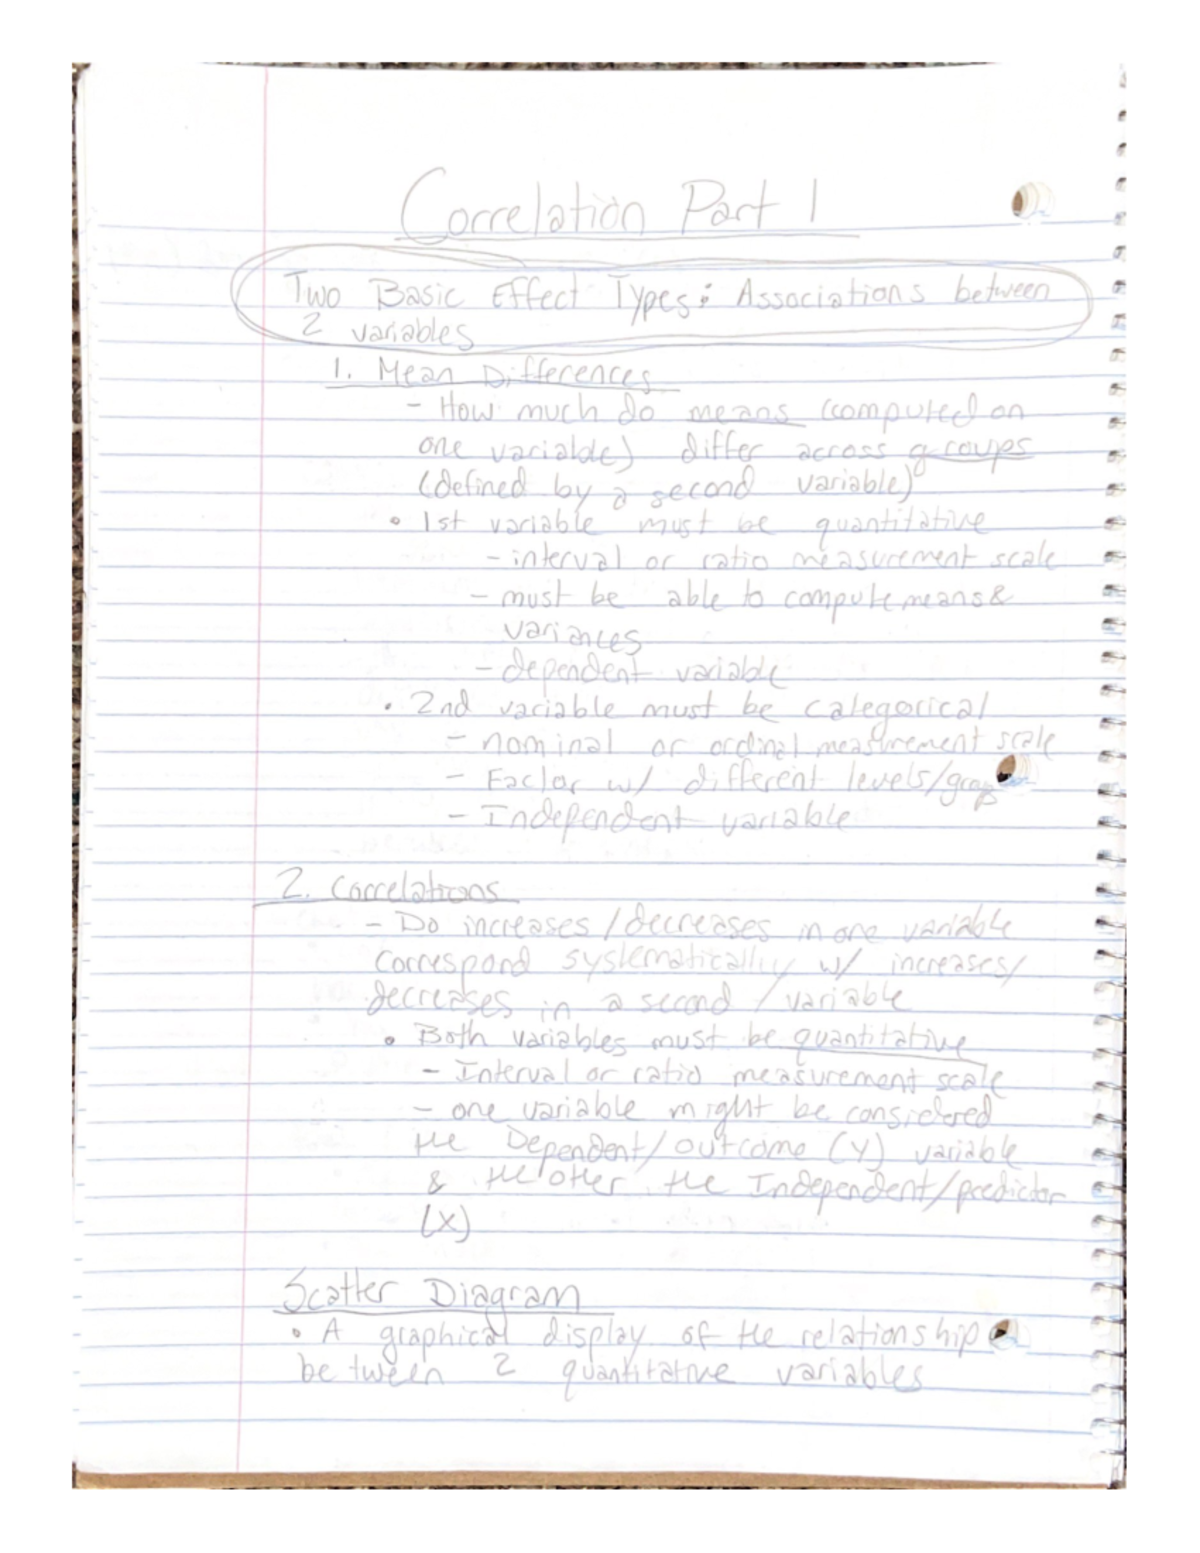 Correlation Part 1
Two Basic Effect Types: Associations between
2 variables
1. Mean Differences
- How much do means (computed on
one variable) differ across groups
(defined by a second variable)
• 1st variable must be quantitative
- interval or ratio measurement scale
- must be able to compute means &
variances
- dependent variable
• 2nd variable must be categorical
- nominal or ordinal measurement scale
- Factor w/ different levels/group
- Independent variable
2. Correlations
- Do increases/decreases in one variable
correspond systematically w/ increases/
decreases in a second / variable
• Both variables must be quantitative
- Interval or ratio measurement scale
- one variable might be considered
the Dependent/outcome (Y) variable
& the other the Independent/predictor
(X)
Scatter Diagram
• A graphical display of the relationship
between 2 quantitative variables